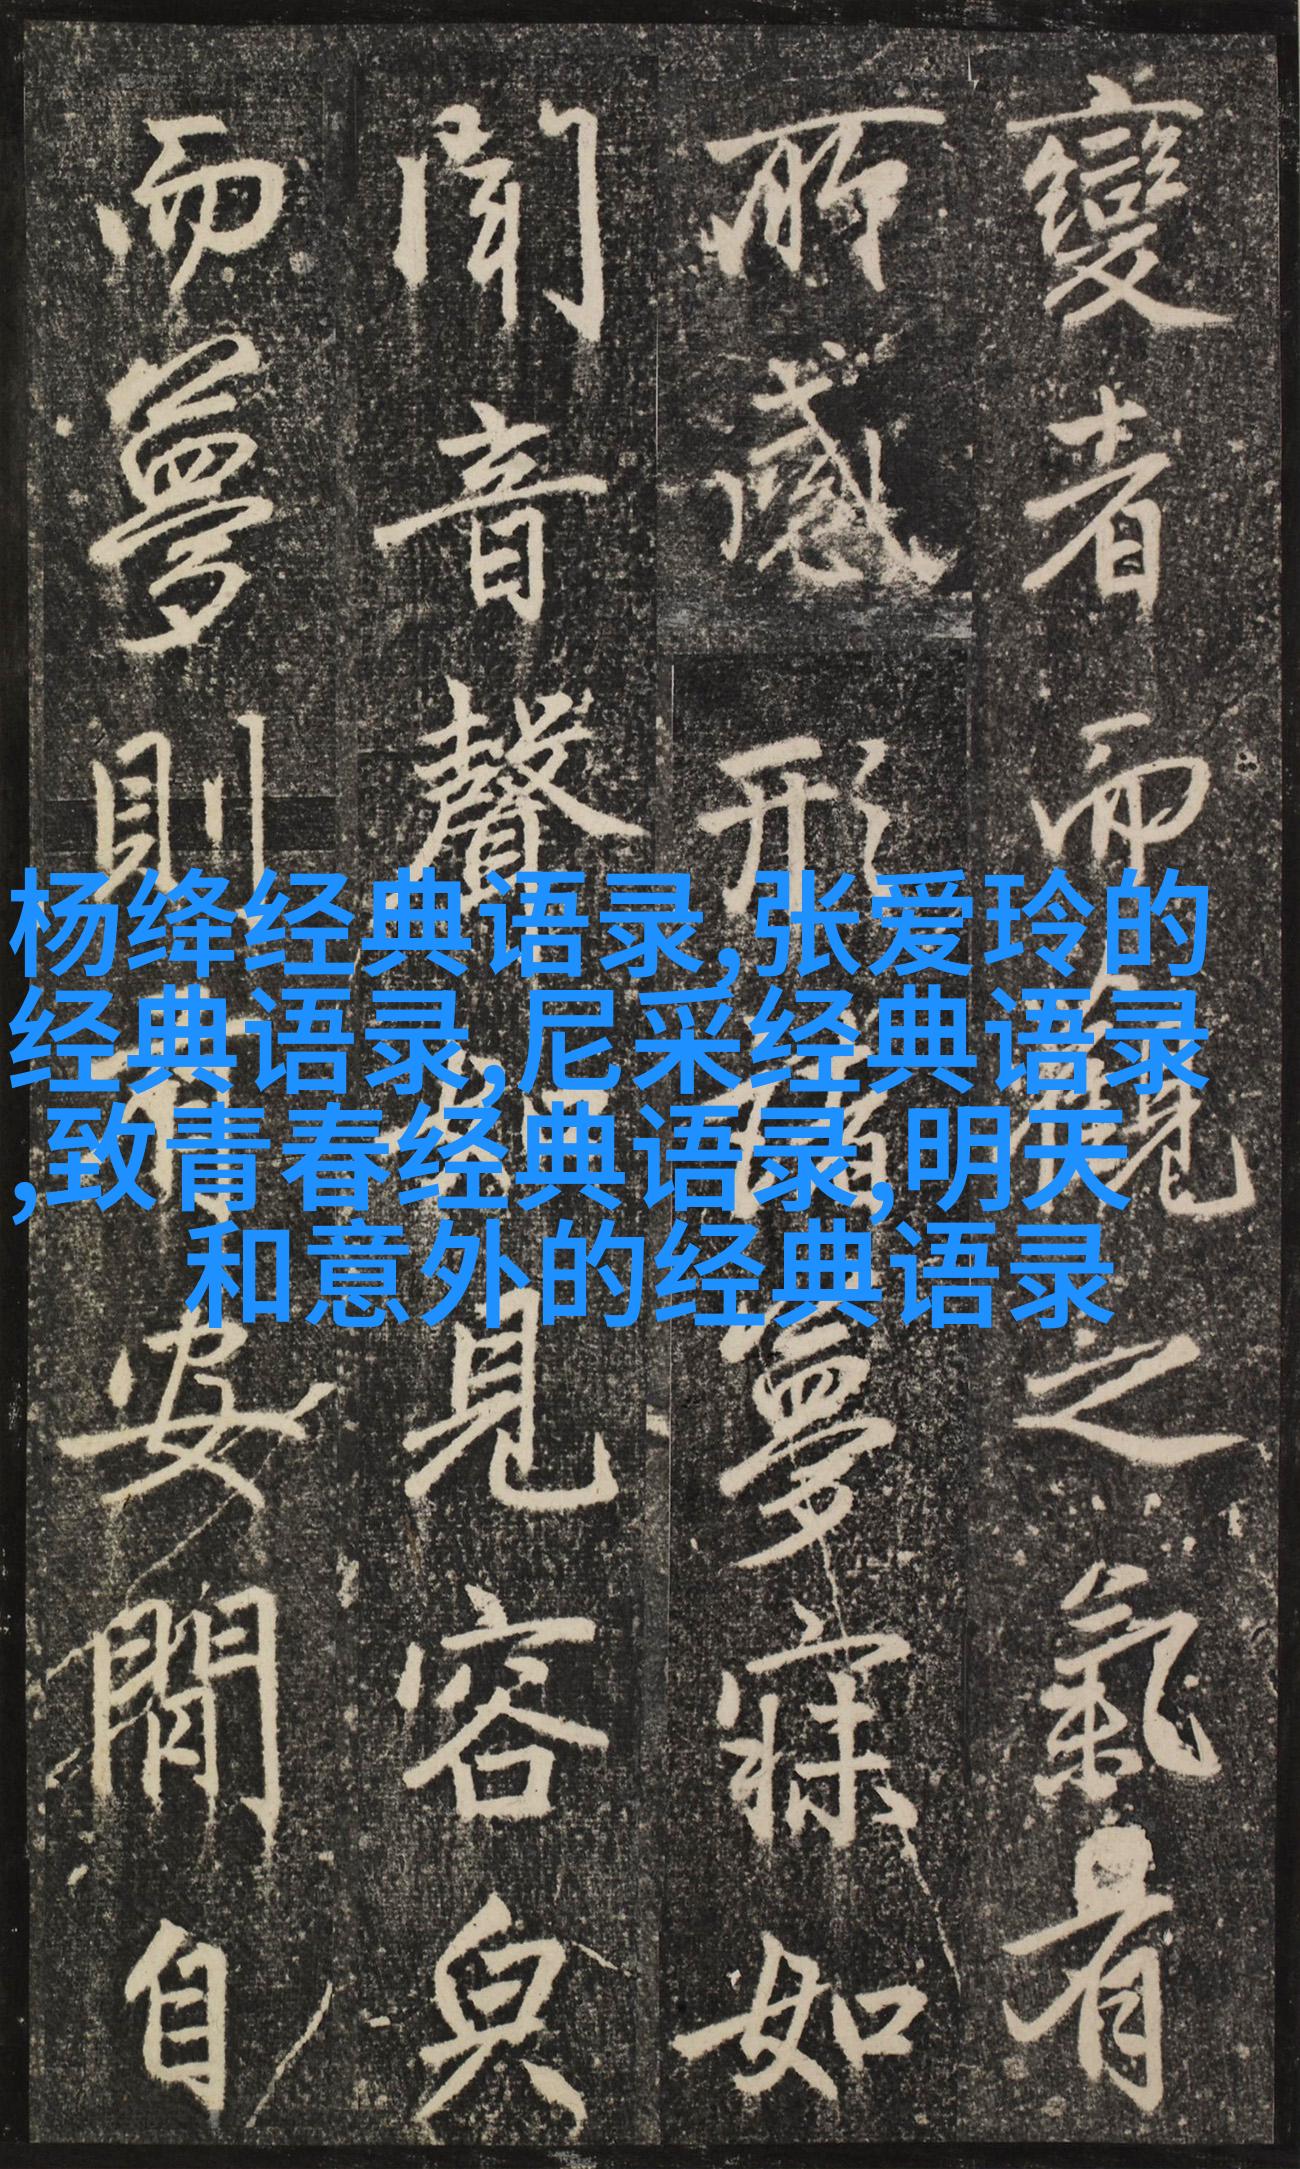 變者而觀之氣有
所感形諸夢寐如
聞音聲如見容皃
而夢則安閒自
杨绛经典语录,张爱玲的
经典语录,尼采经典语录
,致青春经典语录,明天
和意外的经典语录